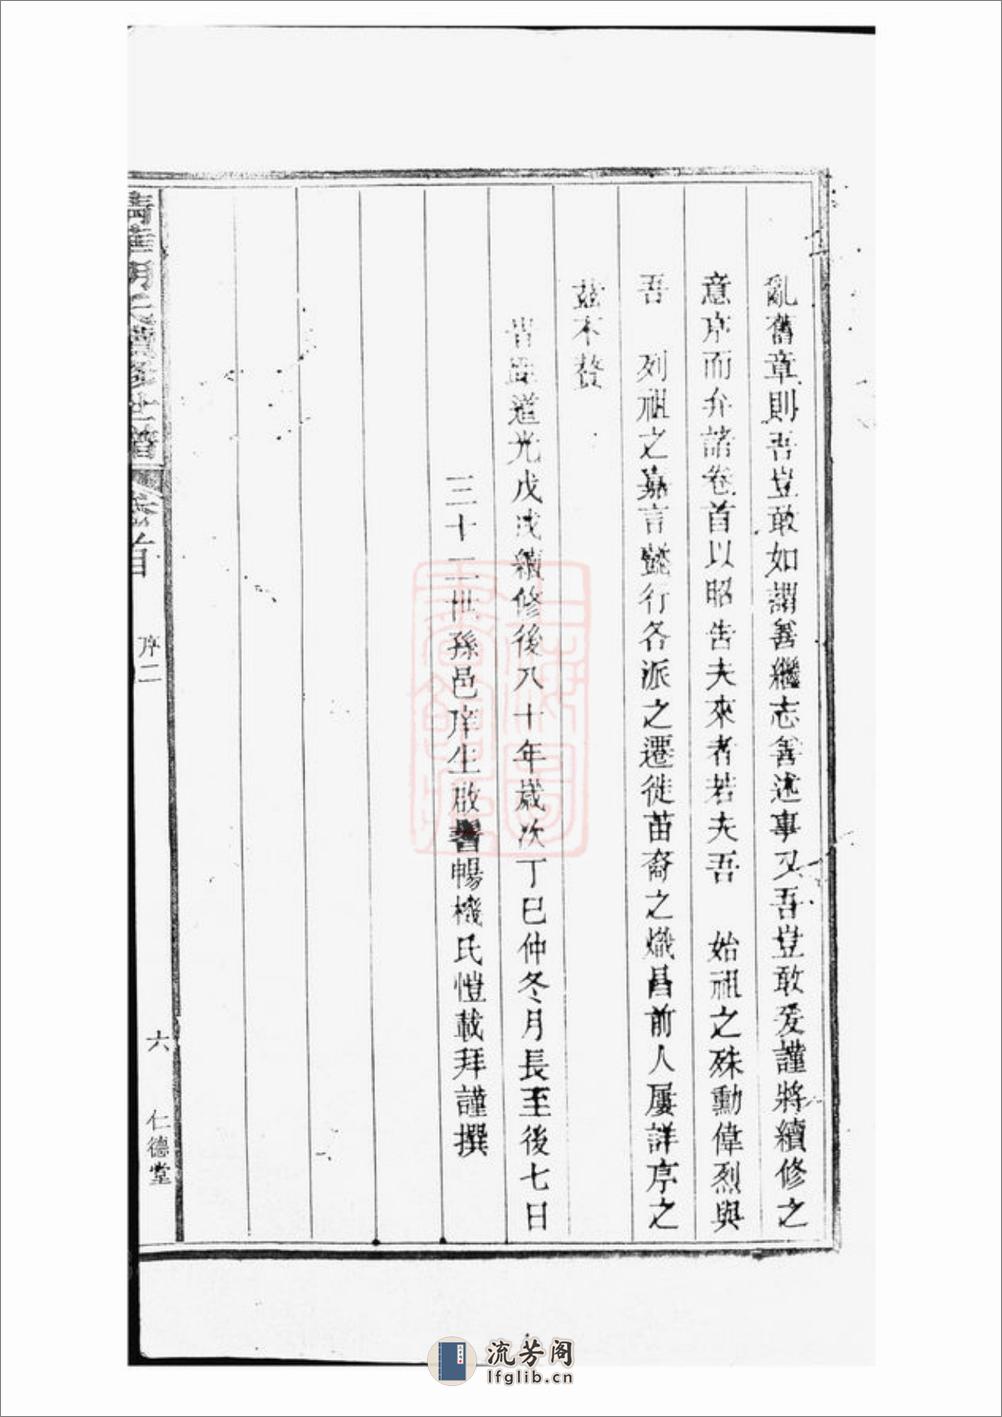 亂舊章則吾豈敢如謂善繼志善述事又吾豈敢爰謹將續修之
意序而弁諸卷首以昭告夫來者若夫吾　始祖之殊勳偉烈與
吾　列祖之嘉言懿行各派之遷徙苗裔之熾昌前人屢詳序之
茲不贅
道光戊戌續修後八十年歲次丁巳仲冬月長至後七日
三十二世孫邑庠生啟 暢機氏愷載拜謹撰
清華胡氏續修世譜
卷首
序二
六
仁德堂
流芳阁
lfglib.cn